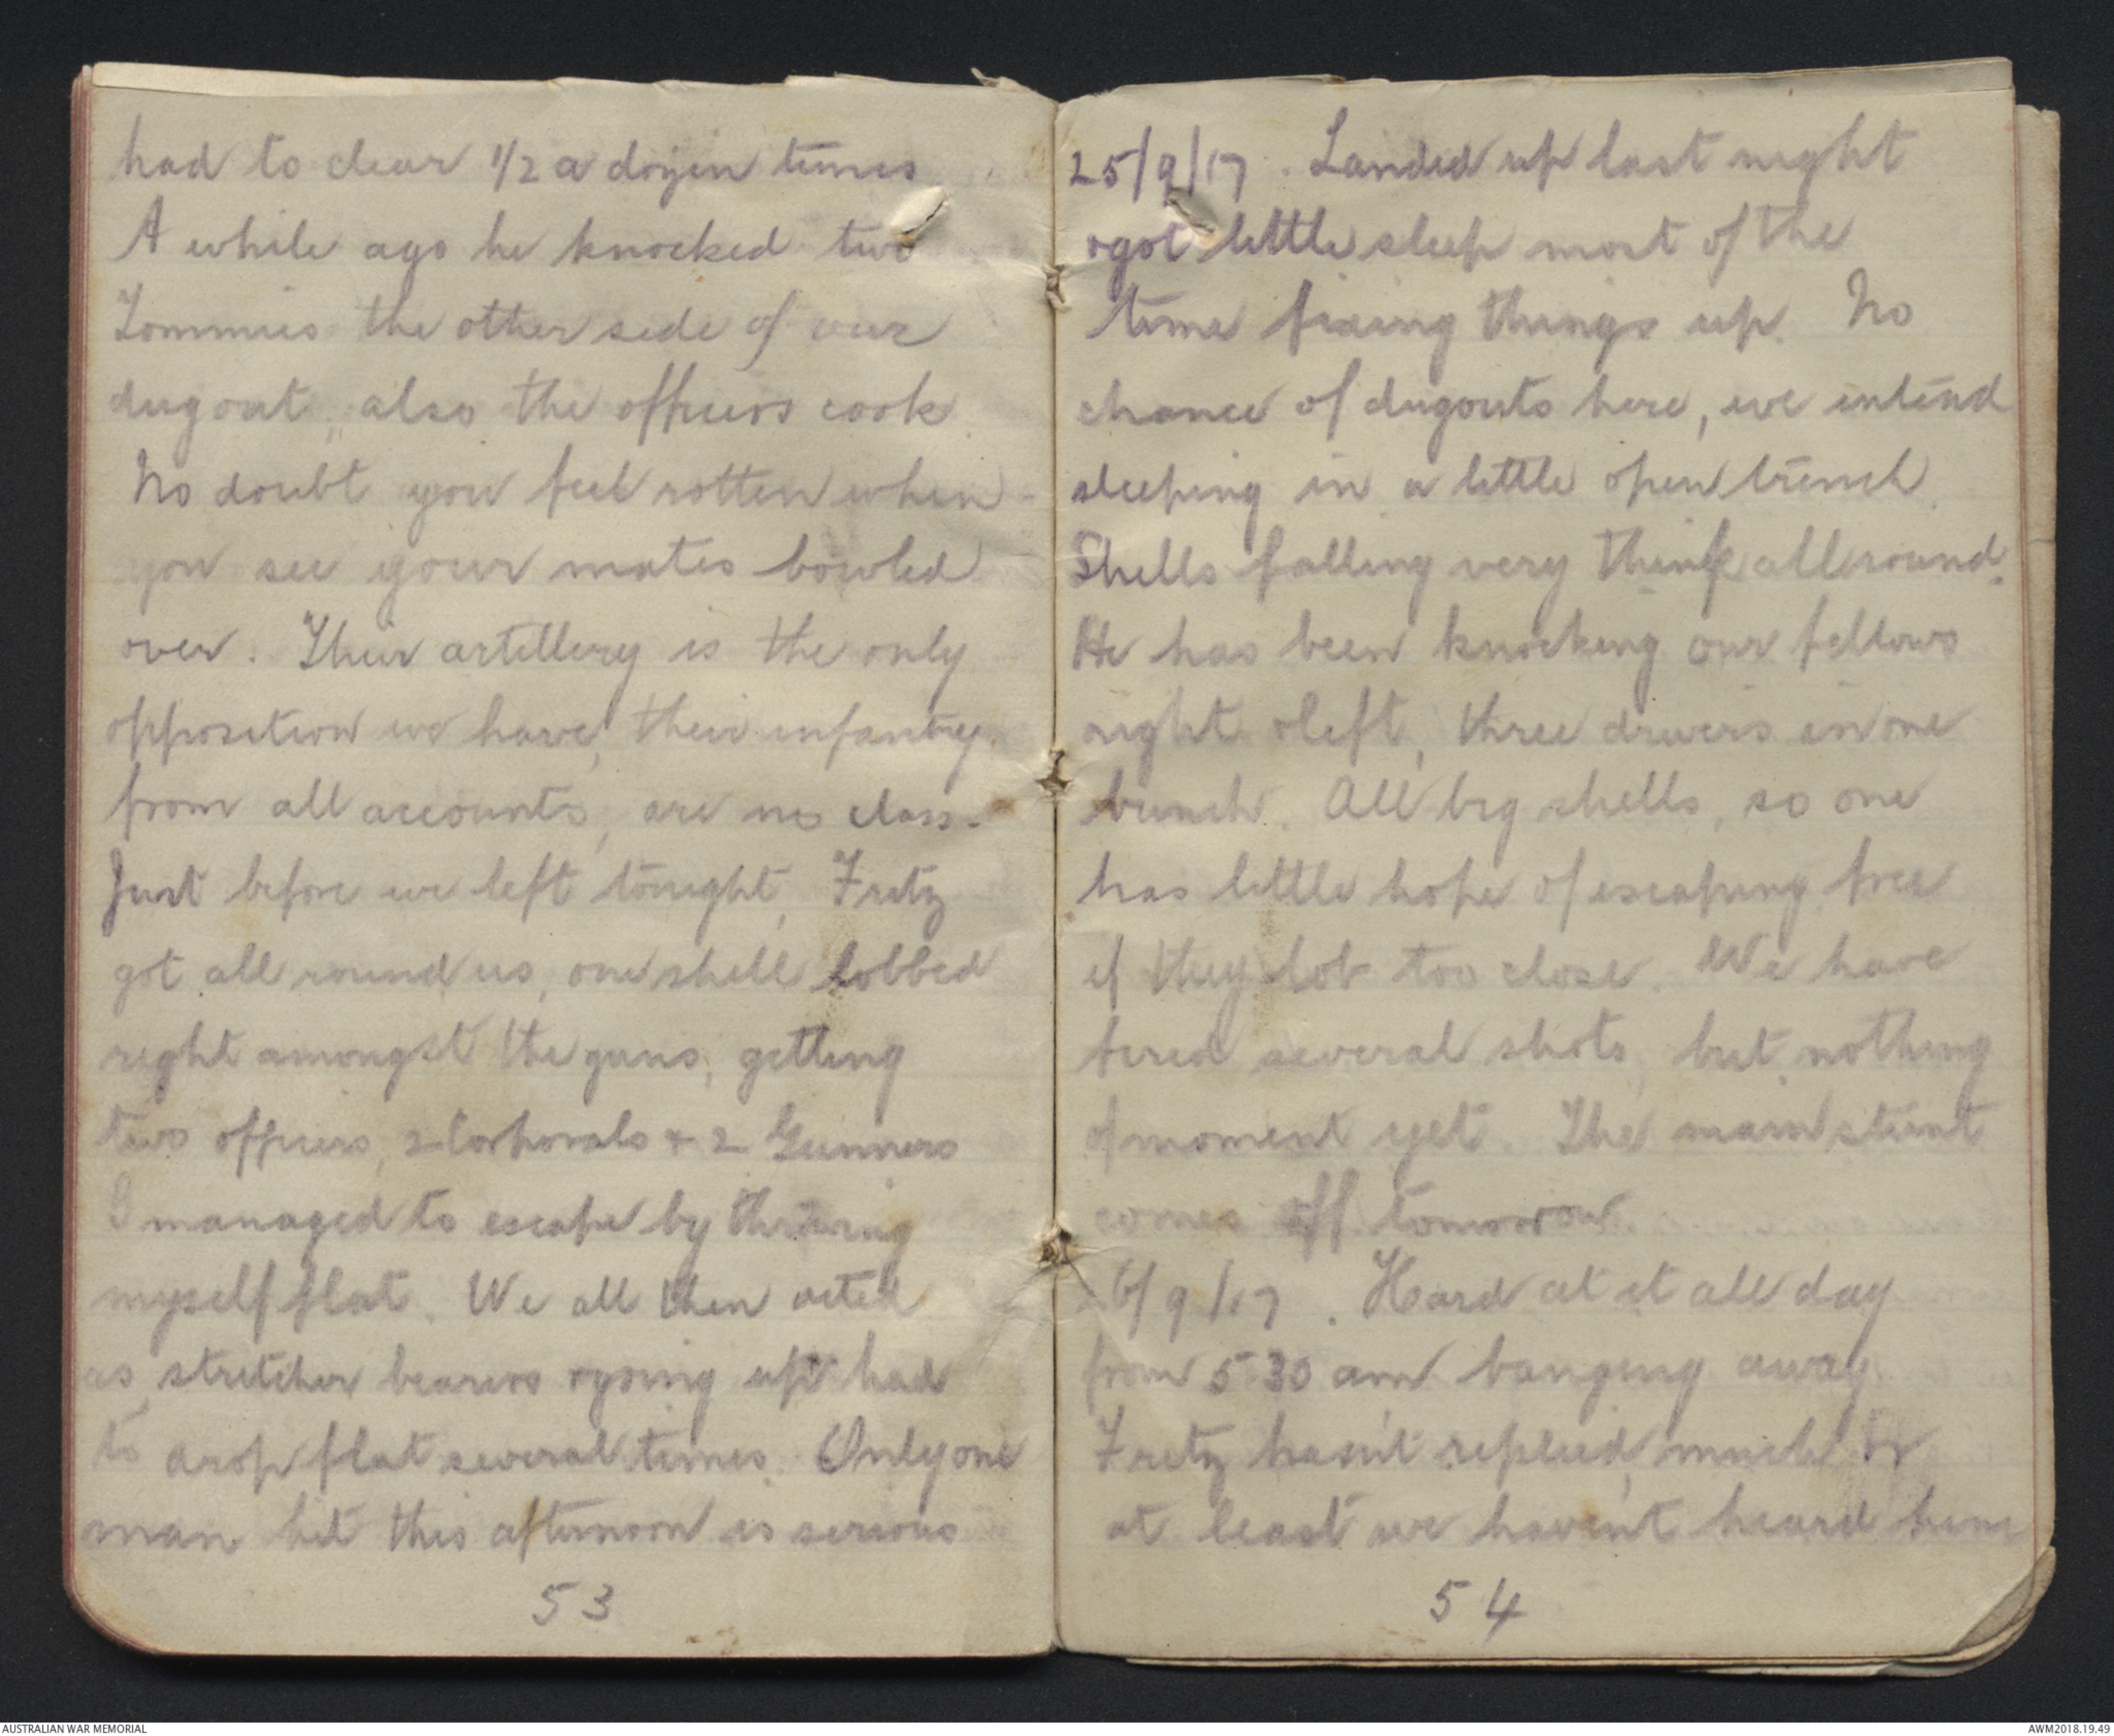 had to clear 1/2 a dozen times
A while ago he knocked two
Tommies the other side of our
dugout, also the officers cook.
No doubt you feel rotten when
you see your mates bowled
over. Their artillery is the only
opposition we have, their infantry
from all accounts, are no class.
Just before we left tonight, Fritz
got all round us, one shell lobbed
right amongst the guns, getting
two officers, 2 Corporals + 2 Gunners
I managed to escape by throwing
myself flat. We all then acted
as stretcher bearers + going up had
to drop flat several times. Only one
man hit this afternoon is serious
53
25/9/17. Landed up last night
+ got little sleep most of the
time fixing things up. No
chance of dugouts here, we intend
sleeping in a little open trench.
Shells falling very thick all round.
He has been knocking our fellows
right + left, three drivers in one
bunch. All big shells, so one
has little hope of escaping free
if they lob too close. We have
fired several shots, but nothing
of moment yet. The main stunt
comes off tomorrow.
26/9/17. Hard at it all day
from 5.30 am banging away
Fritz hasn't replied, much or
at least we haven't heard him
54
AUSTRALIAN WAR MEMORIAL
AWM2018.19.49